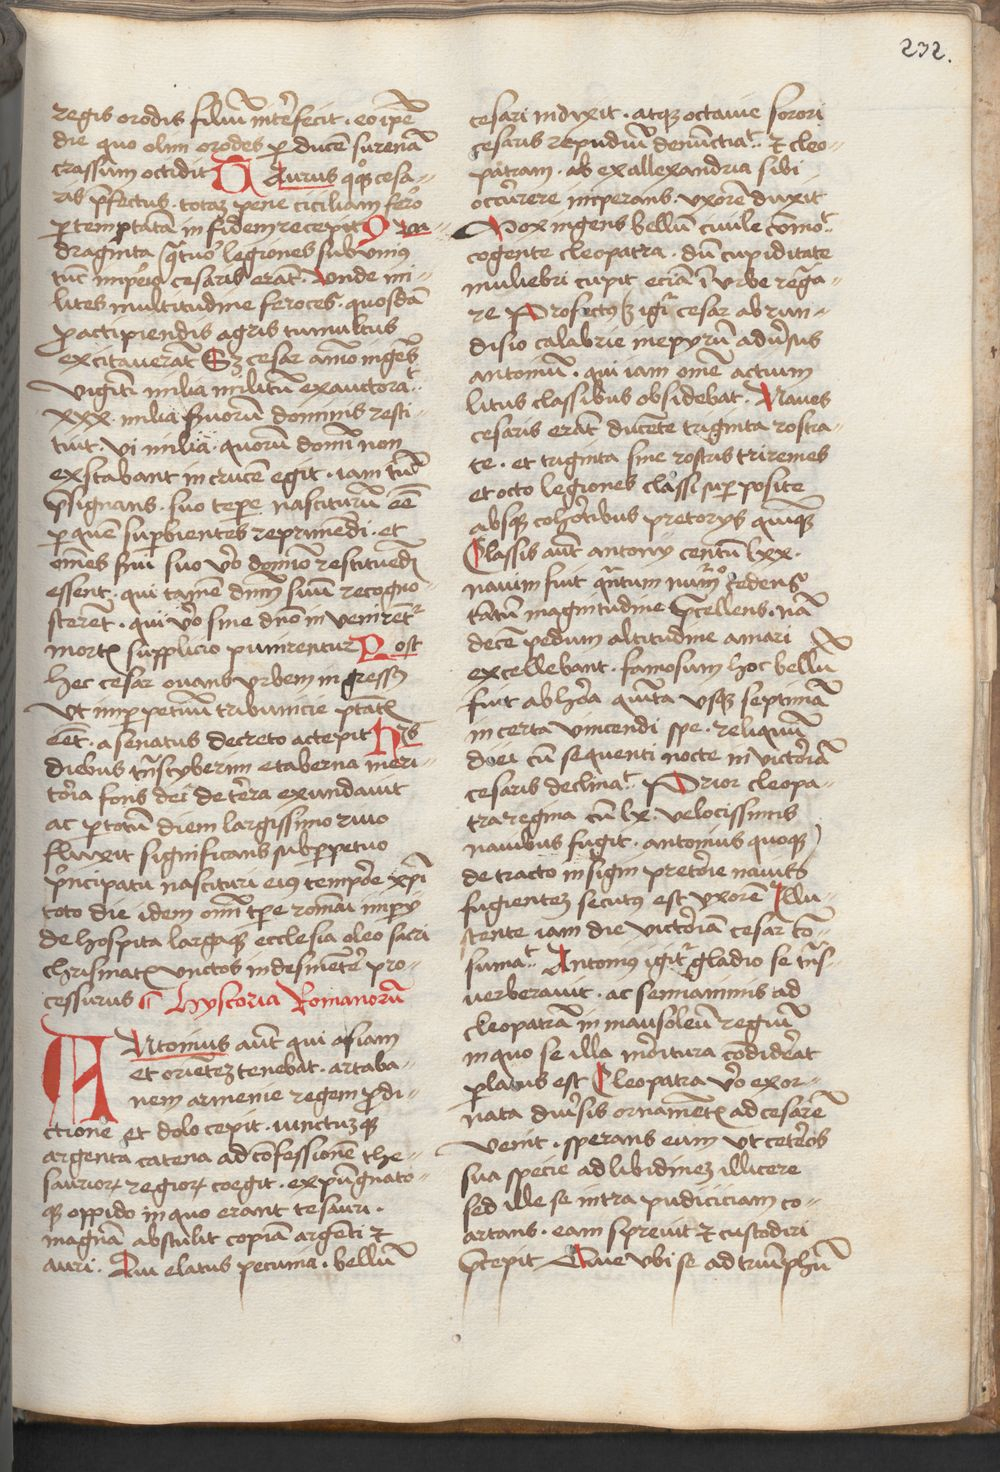 232.
regis orodis filiū int̄efecit · eo ip̄e
die quo olim orodes ꝑ ducē surenā
crassum occidit Taurus qͦꝫ cesa-
ris p̄fectus · totaꝫ pene ciciliam fero
ꝑtemptatā in fidem recepit Qua-
draginta q̄tuoꝛ legiones sub vniꝰ
tūc imꝑio cesaris erāt · Vnde mi-
lites multitudine feroces · quosdā
ꝓ accipiendis agris tumultus
excitauerāt Sꝫ cesar aīo ingēs
viginti milia militū exauctorat̄
xxx · milia ẜuorū dominis resti-
tuit · vi milia · quorū domī non
exstabant in crucē egit · iam tūc
p̄signans · suo tēpe nasciturū eē
ꝑ quē supbientes reprimēdi · et
om̄es ẜui suo v̄o domīo restituēdi
essent · qui tamē dn̄m suū recogno-
scerēt · qui v̄o sine dn̄o inveniret̄
mortꝭ supplicio punirentur Post
hec cesar ouans vrbem ingressꝰ
vt imꝑpetuū tribunicie ptātꝭ
eēt · a senatus decreto accepit Hijs
diebus tn̄styberim e taberna meri-
toria fons olei de t̄era exundauit
ac ꝑ totū diem largissimo riuo
fluxit significans sub ꝑpetuo
p̄ncipatu nascituri eiꝰ tempoꝛe xp̄i
toto die idem om̄i tp̄e romāi imꝑij
de hospita largaqꝫ ecclesia oleo sacri
chrismatꝭ vnctos indesinēt̄e pro-
cessurus ¶ Hystoria Romanorū
ANtonius aūt qui asiam
et oriētēꝫ tenebat · artaba-
nem armenie regem ꝓdi-
ctione et dolo cepit · iunctumqꝫ
argentā catena ad cōfessionē the-
saurioꝝ regioꝝ coegit · expūgnato-
qꝫ oppido in quo erant tesauri ·
magnā abstulit copiā argēti ⁊
auri · Qui elatus pecunia · bellū
cesari indixit · atqꝫ octauie sorori
cesaris repudiū denūctiat̄ ⁊ cleo-
patram · ab ex allexandria sibi
occurrere inperans · vxorē duxit
Mox ingens bellū ciuile cōmot̄
cogente cleopatra · dū cupiditate
muliebri cupit eciā ī vrbe regna-
re Profectꝰqꝫ igit̄ cesar ab brun-
disio calabrie in epyrū adūsus
antoniū · qui iam om̄e actium
litus classibus obsidebat · Naues
cesaris erāt ducēte triginta rostra-
te · et triginta sine rostris triremes
et octo legiones classi suꝑposite
absqꝫ cohortibus pretorijs quīqꝫ
Classis aūt antonij centū lxx ·
nauium fuit q̄ntum nūm̄o cedens
tātū magnitudine p̄cellens · nā
decē pedum altitudine a mari
excellebant · famosum hoc bellū
fuit ab hōa quīta vsqꝫ septimā
incerta vincendi spe · reliquiū
diei cū sequenti nocte in victoriā
cesaris declinat̄ Prior cleopa-
tra regina cū lx · velocissimis
nauibus fugit · antonius quoqꝫ
detracto insigni pretorie nauis
fugientēꝫ secutꝰ est vxorē Illu-
scente iam die victoriā cesar cō-
sumat̄ Antoniꝰ igit̄ gladio se tn̄s-
uerberauit · ac semianimis ad
cleopatrā in mausoleū regium
in quo se illa moritura cōdiderat
ꝑlatus est Cleopatra v̄o exor-
nata diūsis ornamētꝭ ad cesarē
venit · sperans eum vt ceteros
sua specie ad libidineꝫ illicere
sed ille se intra pudiciciam co-
artans · eam spreuit ⁊ custodiri
p̄cepit Que vbi se ad triūphū